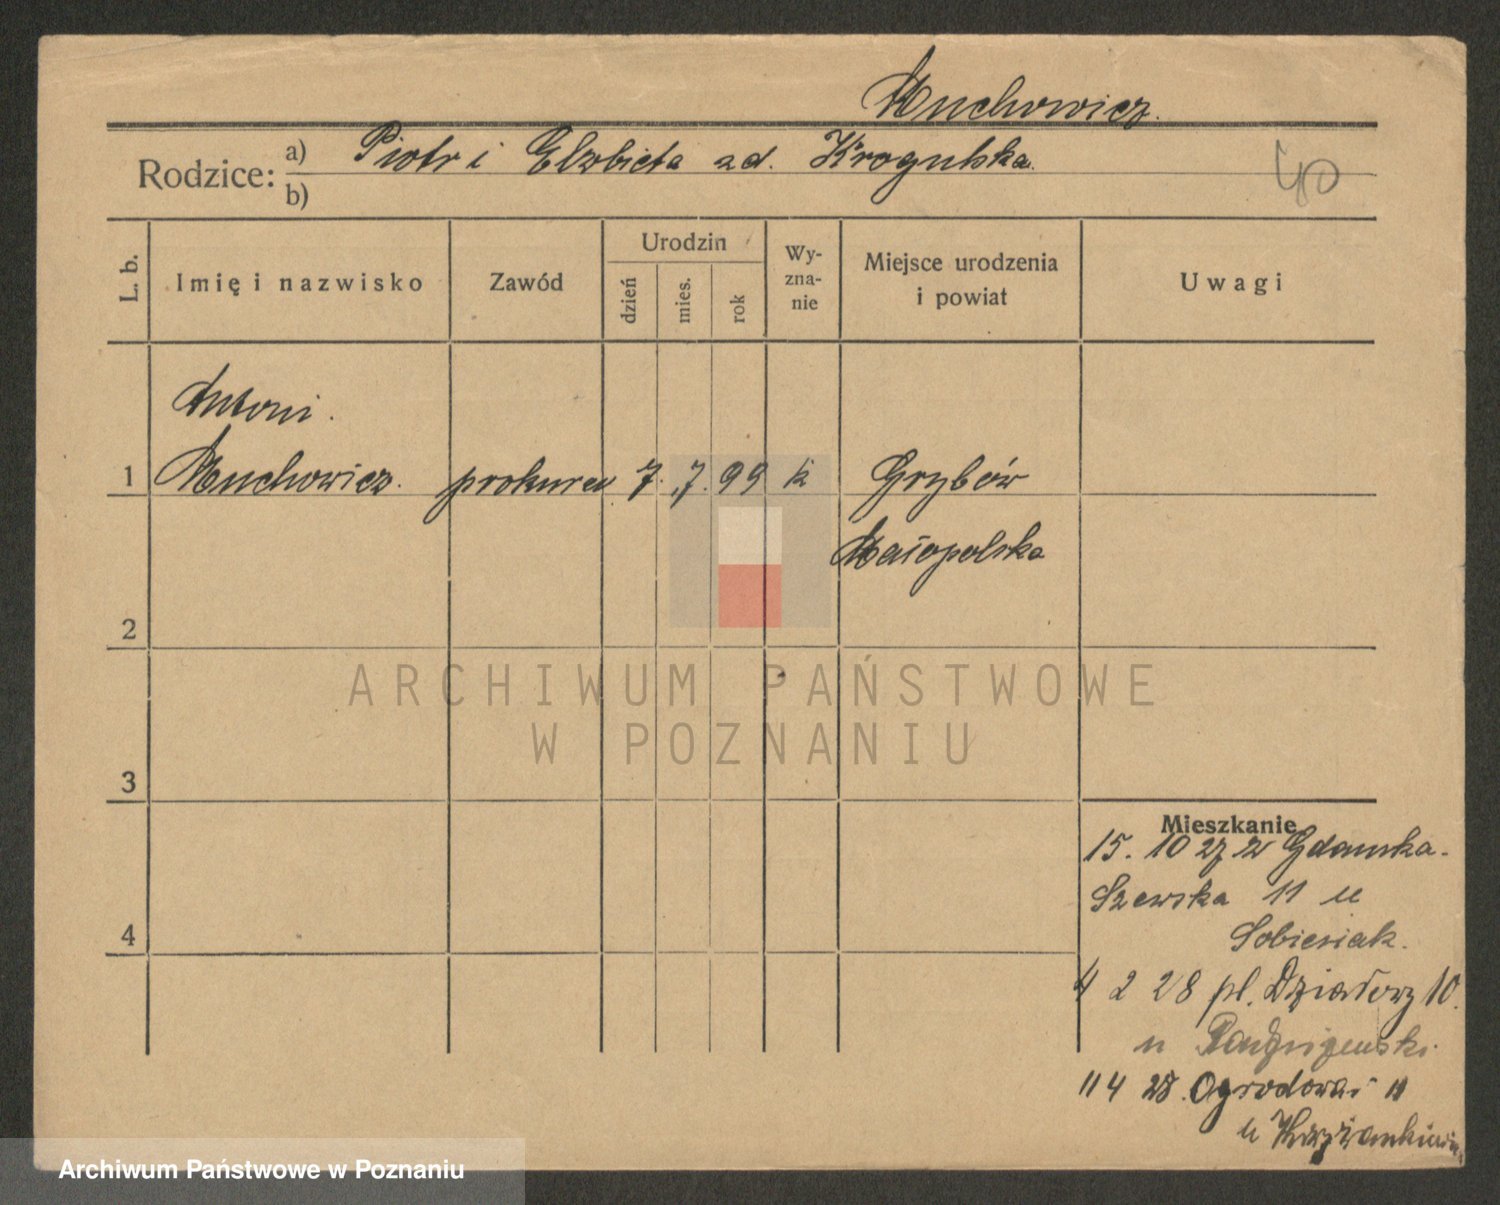 Muchowicz.
Rodzice: a) Piotr i Elzbieta zd. Krogulska.
b)
40
L. b.
Imię i nazwisko
Zawód
Urodzin
dzień
mies.
rok
Wy-
zna-
nie
Miejsce urodzenia
i powiat
Uwagi
Antoni.
1 Muchowicz. 7. 7. 99 k Grybów
Małopolska
2
3
4
Mieszkanie
15. 10 27 z Gdańska.
Szewska 11 u
Sobiesiak.
4 2 28 pl. Działowy 10.
u
11 4 28. Ogrodowa 11
u
ARCHIWUM PAŃSTWOWE
W POZNANIU
Archiwum Państwowe w Poznaniu